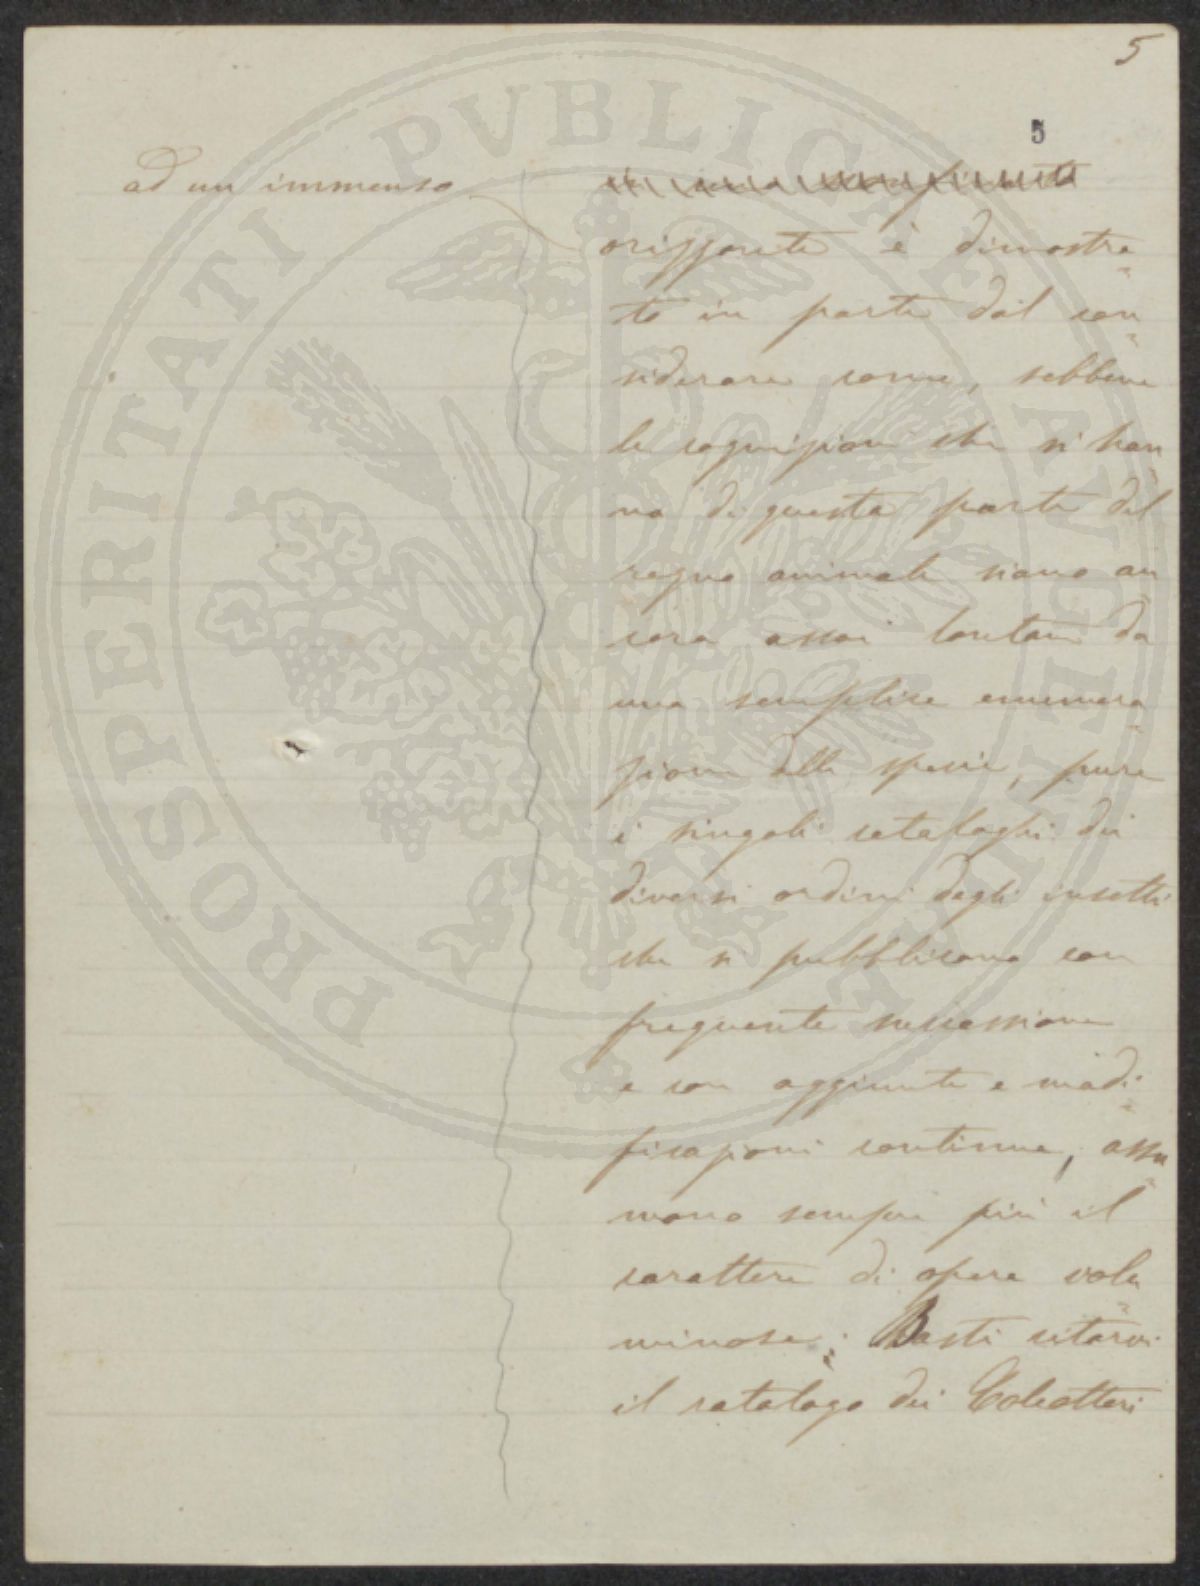 5
5
ad un immenso
orizzonte è dimostra
to in parte dal con
siderare come, sebbene
le cognizioni che si han
no di questa parte del
regno animale siano an
cora assai lontane da
una semplice enumera
zione delle specie, pure
i singoli cataloghi dei
diversi ordini degli insetti
che si pubblicano con
frequente successione
e con aggiunte e modi
ficazioni continue, assu
mono sempre più il
carattere di opere volu
minose; Basti citarvi
il catalogo dei Coleotteri
PROSPERITATI PVBLICAE